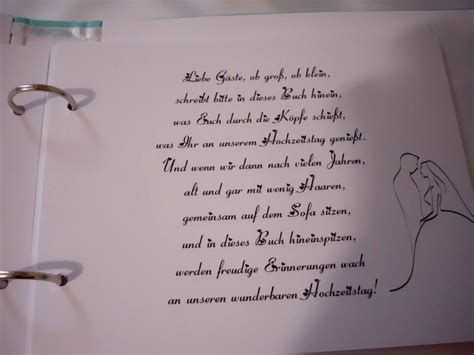 Liebe Gäste, ob groß, ob klein,
schreibt bitte in dieses Buch hinein,
was Euch durch die Köpfe schießt,
was Ihr an unserem Hochzeitstag genießt.
Und wenn wir dann nach vielen Jahren,
alt und gar mit wenig Haaren,
gemeinsam auf dem Sofa sitzen,
und in dieses Buch hineinspitzen,
werden freudige Erinnerungen wach
an unseren wunderbaren Hochzeitstag!